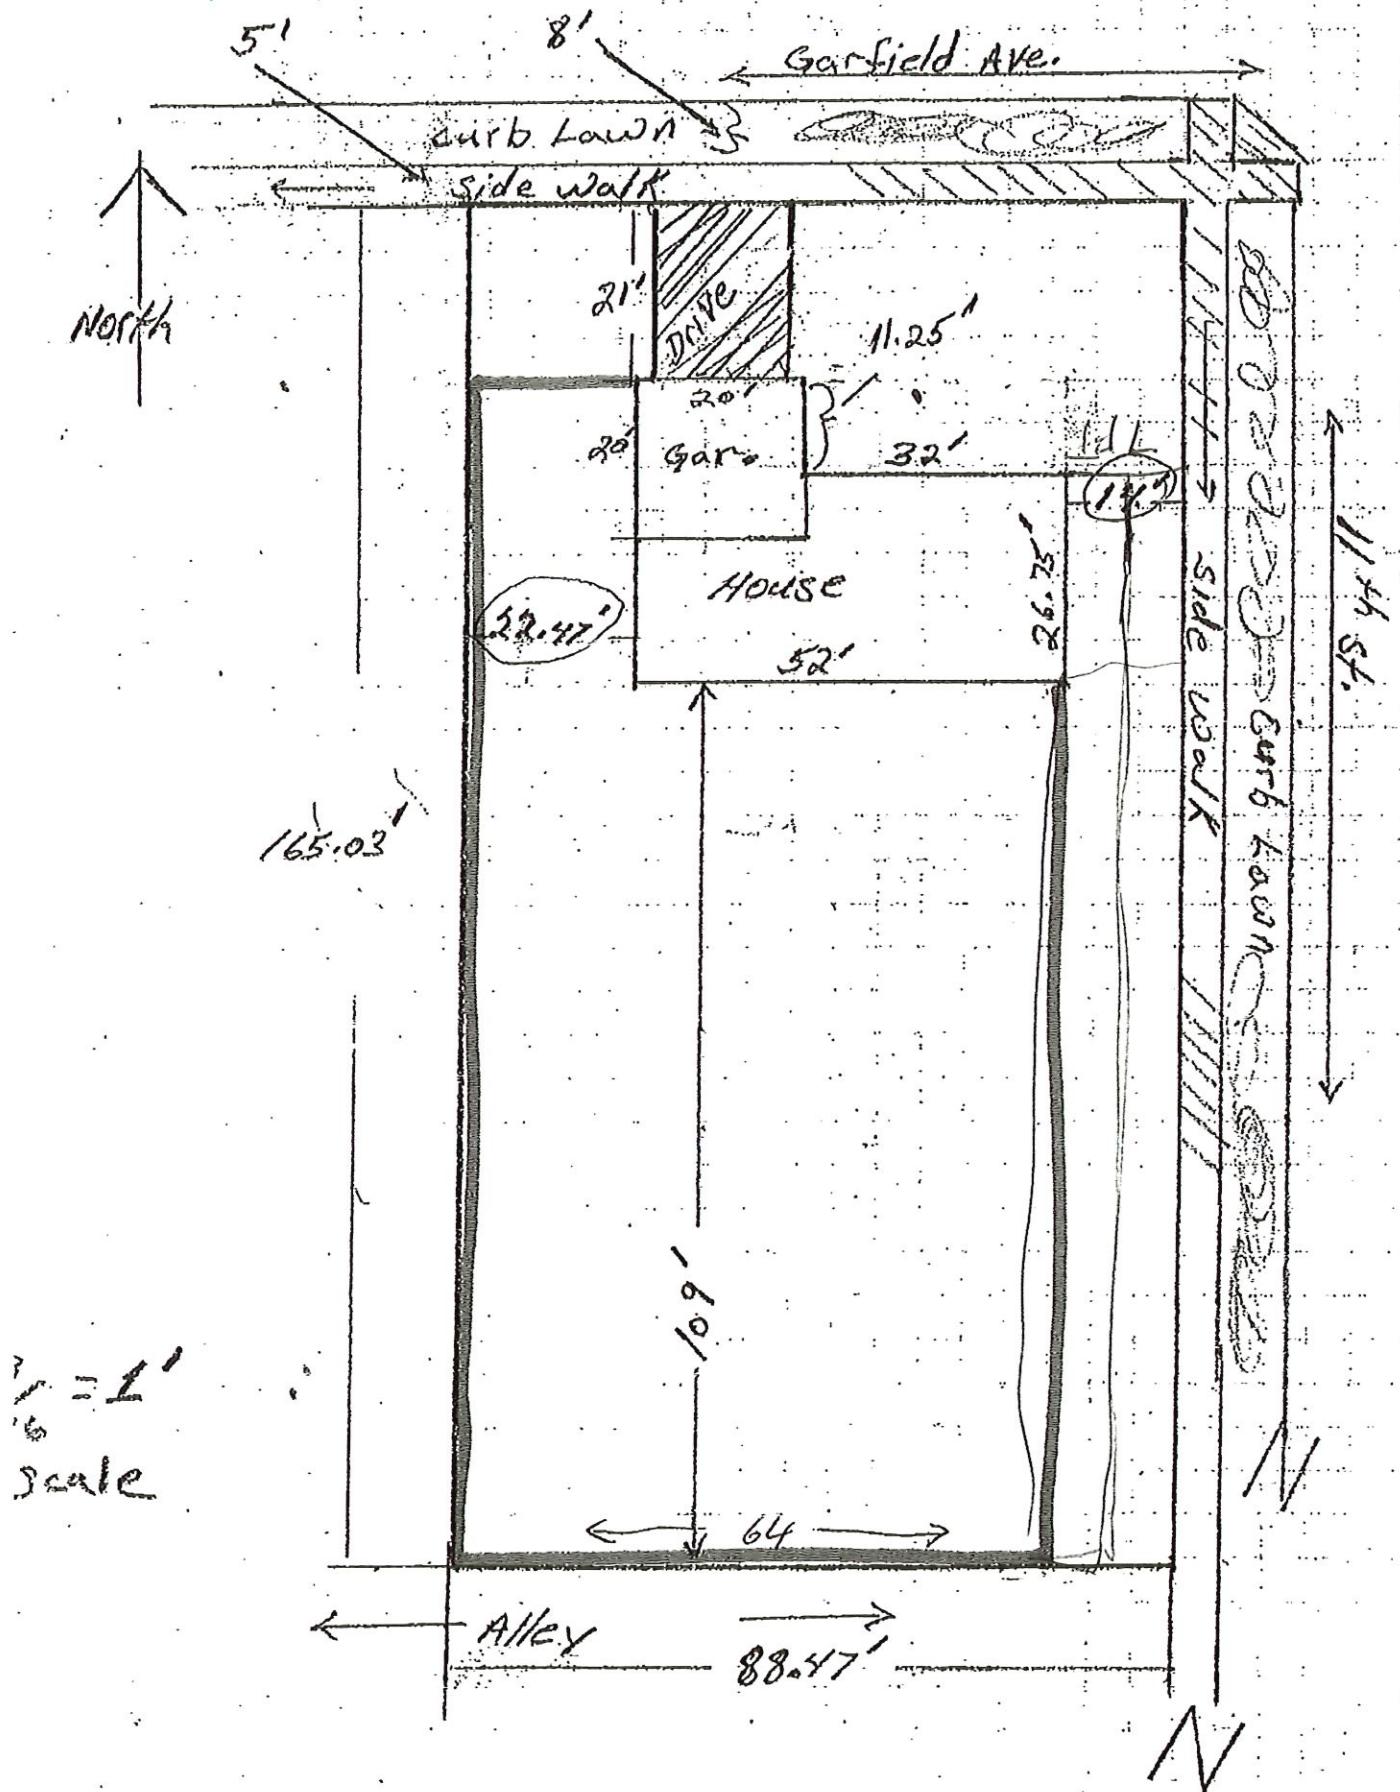 5'
8'
Garfield Ave.
curb Lawn
side walk
North
21'
Drive
11.25'
20'
20'
Gar.
32'
14'
22.47'
House
26.75'
52'
side walk
curb Lawn
11th St.
165.03'
109'
= 1'
scale
64
Alley
88.47'
N
N